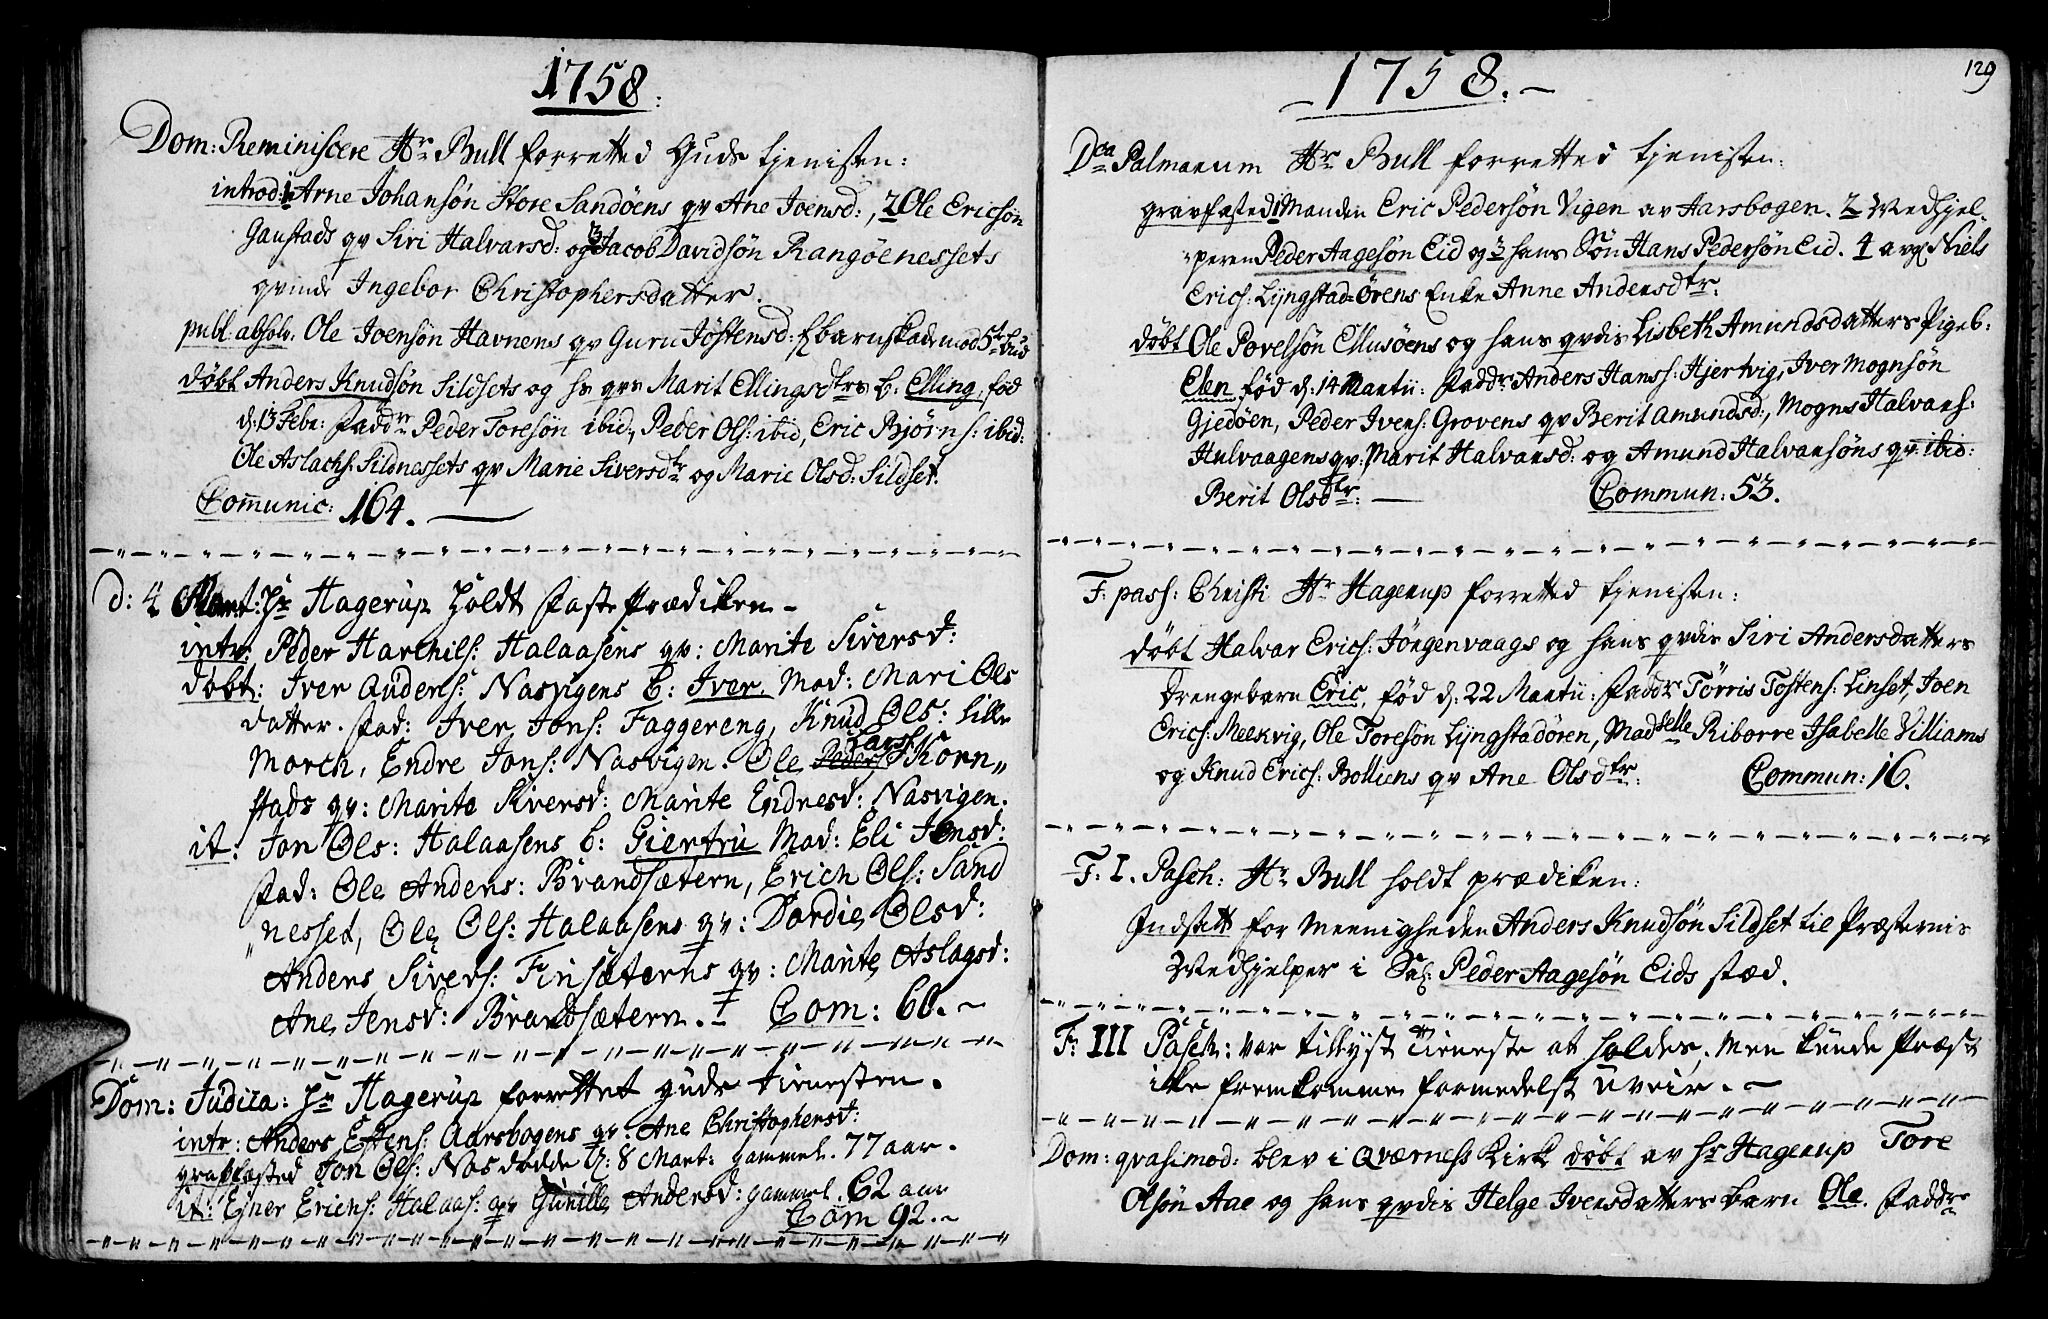 1758.
Dom: Reminiscere Hr Bull forretted Guds tjenisten:
introd: 1 Arne Johansøn Store Sandöens qv Ane Joensd:, 2 Ole Ericsön
Gaustads qv Siri Halvarsd: og 3 Jacob Davidsön Rangöenessets
qvinde Ingebor Christophersdatter.
publ. absolv. Ole Joensön Havnens qv Guru Jöstensd:
döbt Anders Knudsön Sildsets og hs qvs Marit Ellingsdtrs b: Elling, fød
d: 13 Febr: Faddr Peder Toresön ibid:, Peder Ols: ibid, Eric Bjørns: ibid:
Ole Aslachs: Sildnessets qv Marie Siversdtr og Marie Olsd: Sildset.
Comunic: 164.
d: 4 Mart: Hr Hagerup holdt Fasteprædiken -
intr: Peder Harchils: Halaasens qv: Marite Siversd:
döbt: Iver Anders: Nasvigens b: Iver. Mod: Mari Ols
datter. Fad: Iver Jons: Faggereng, Knud Ols: Lille
Morch, Endre Jons: Nasvigen. Ole Peders: Lars: Korn„
stads qv: Marite Siversd: Marite Endresd: Nasvigen.
it: Jon Ols: Halaasens b: Giertru Mod: Eli Jonsd:
Fad: Ole Anders: Brandsætern, Erich Ols: Sand
„nesset, Ole Ols: Halaasens qv: Dordie Olsd:
Anders Sivers: Finsæterns qv: Marite Aslagsd:
Ane Jensd: Brandsætern. Com: 60. -
Dom: Judica: Hr Hagerup forrettet Guds tienesten.
intr: Anders Estens: Aarsbogens qv: Ane Christophersd:
grafkasted Jon Ols: Nas dødde d: 8 Mart: gammel. 77 aar.
it: Ejner Erichs: Halaas: qv Gunille Andersd: gammel. 62 aar
Com 92. -
1758. -
129
Dca Palmarum Hr Bull forretted tjenisten:
gravfasted 1 Manden Eric Pedersön Vigen av Aarsbogen. 2 Medhjel-
peren Peder Aagesön Eid og 3 hans Sön Hans Pedersön Eid. 4 avg: Niels
Erics: Lyngstad-Örens Enke Anne Andersdtr.
döbt Ole Povelsön Ellusöens og hans qvdis Lisbeth Amundsdatters Pigeb:
Elen fød d: 14 Martii: Faddr: Anders Hanss: Hjertvig, Iver Mognsön
Gjedöen, Peder Ivers: Grovens qv Berit Amundsd:, Mogns Halvars:
Hulvaagens qv: Marit Halvarsd: og Amund Halvarsöns qv: ibid:
Berit Olsdtr: Commun: 53.
F: pass: Christi Hr Hagerup forretted tjenisten:
döbt Halvar Erics: Jörgenvaags og hans qvdis Siri Andersdatters
drengebarn Eric, fød d: 22 Martii: Faddr Törris Tostens: Linset, Joen
Erics: Meekvig, Ole Toresön Lyngstadören, Madselle Riborre Isabelle Villiams
og Knud Erics: Bolliens qv Ane Olsdtr: Commun: 16.
F: I. Pasch: Hr Bull holdt prædiken:
Indsatt for Meenigheden Anders Knudsön Sildset til Præsternis
Medhjelper i Sal: Peder Aagesön Eids stæd.
Fr III Pasch: var tillyst Tieneste at holdes, Men kunde Præst
ikke fremkomme formedelst Uveir. -
Dom: qvasimod: blev i Qværness Kirk döbt av Hr Hagerup Tore
Olsön Aae og hans qvdis Helge Iversdatters barn Ole. Faddr